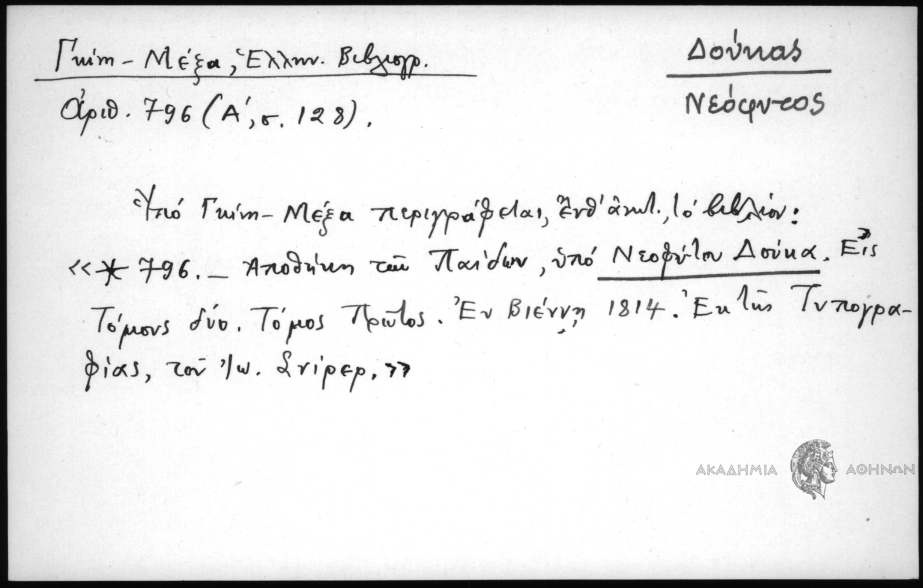 Γκίνη - Μέξα, Ἑλλην. Βιβλιογρ.
Ἀριθ. 796 (Α΄, σ. 128).
Δούκας
Νεόφυτος
Ὑπό Γκίνη - Μέξα περιγράφεται, ἔνθ' ἀνωτ., τό βιβλίον:
«* 796. — Αποθήκη τῶν Παίδων, ὑπό Νεοφύτου Δούκα. Εἰς
Τόμους δύο. Τόμος Πρῶτος. Ἐν Βιέννῃ 1814. Ἐκ τῆς Τυπογρα-
φίας, τοῦ Ἰω. Σνίρερ.»
ΑΚΑΔΗΜΙΑ ΑΘΗΝΩΝ